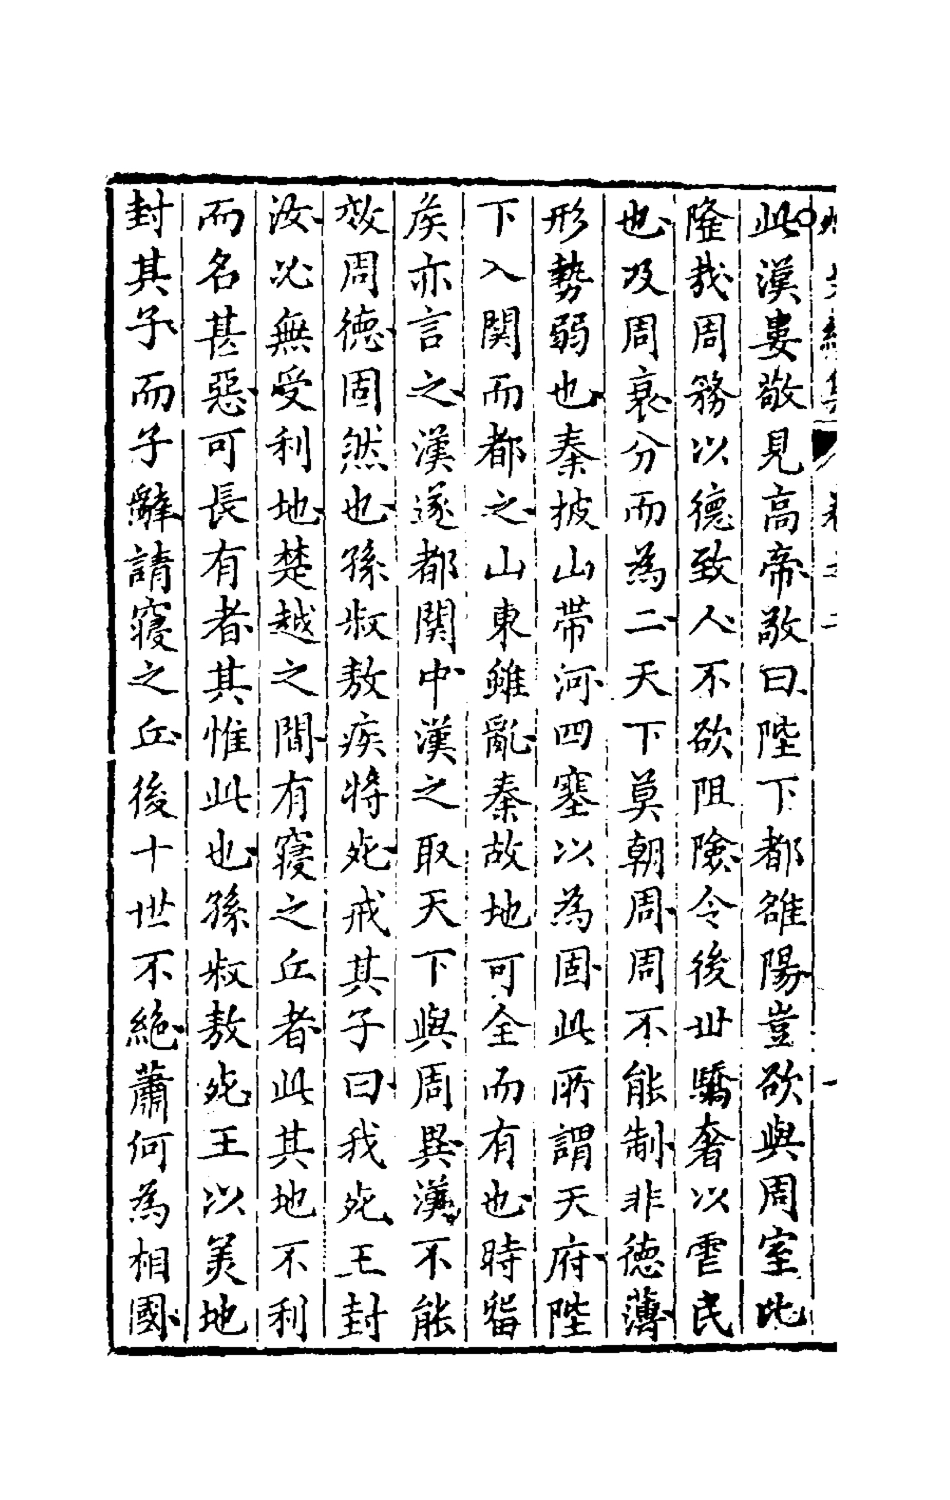 此漢婁敬見高帝敬曰陛下都雒陽豈欲與周室比
隆哉周務以德致人不欲阻險令後世驕奢以虐民
也及周衰分而為二天下莫朝周周不能制非德薄
形勢弱也秦披山帶河四塞以為固此所謂天府陛
下入関而都之山東雖亂秦故地可全而有也時留
矦亦言之漢遂都関中漢之取天下與周異漢不能
效周德固然也孫叔敖疾將死戒其子曰我死王封
汝必無受利地楚越之間有寑之丘者此其地不利
而名甚惡可長有者其惟此也孫叔敖死王以美地
封其子而子辭請寑之丘後十世不絕蕭何為相國